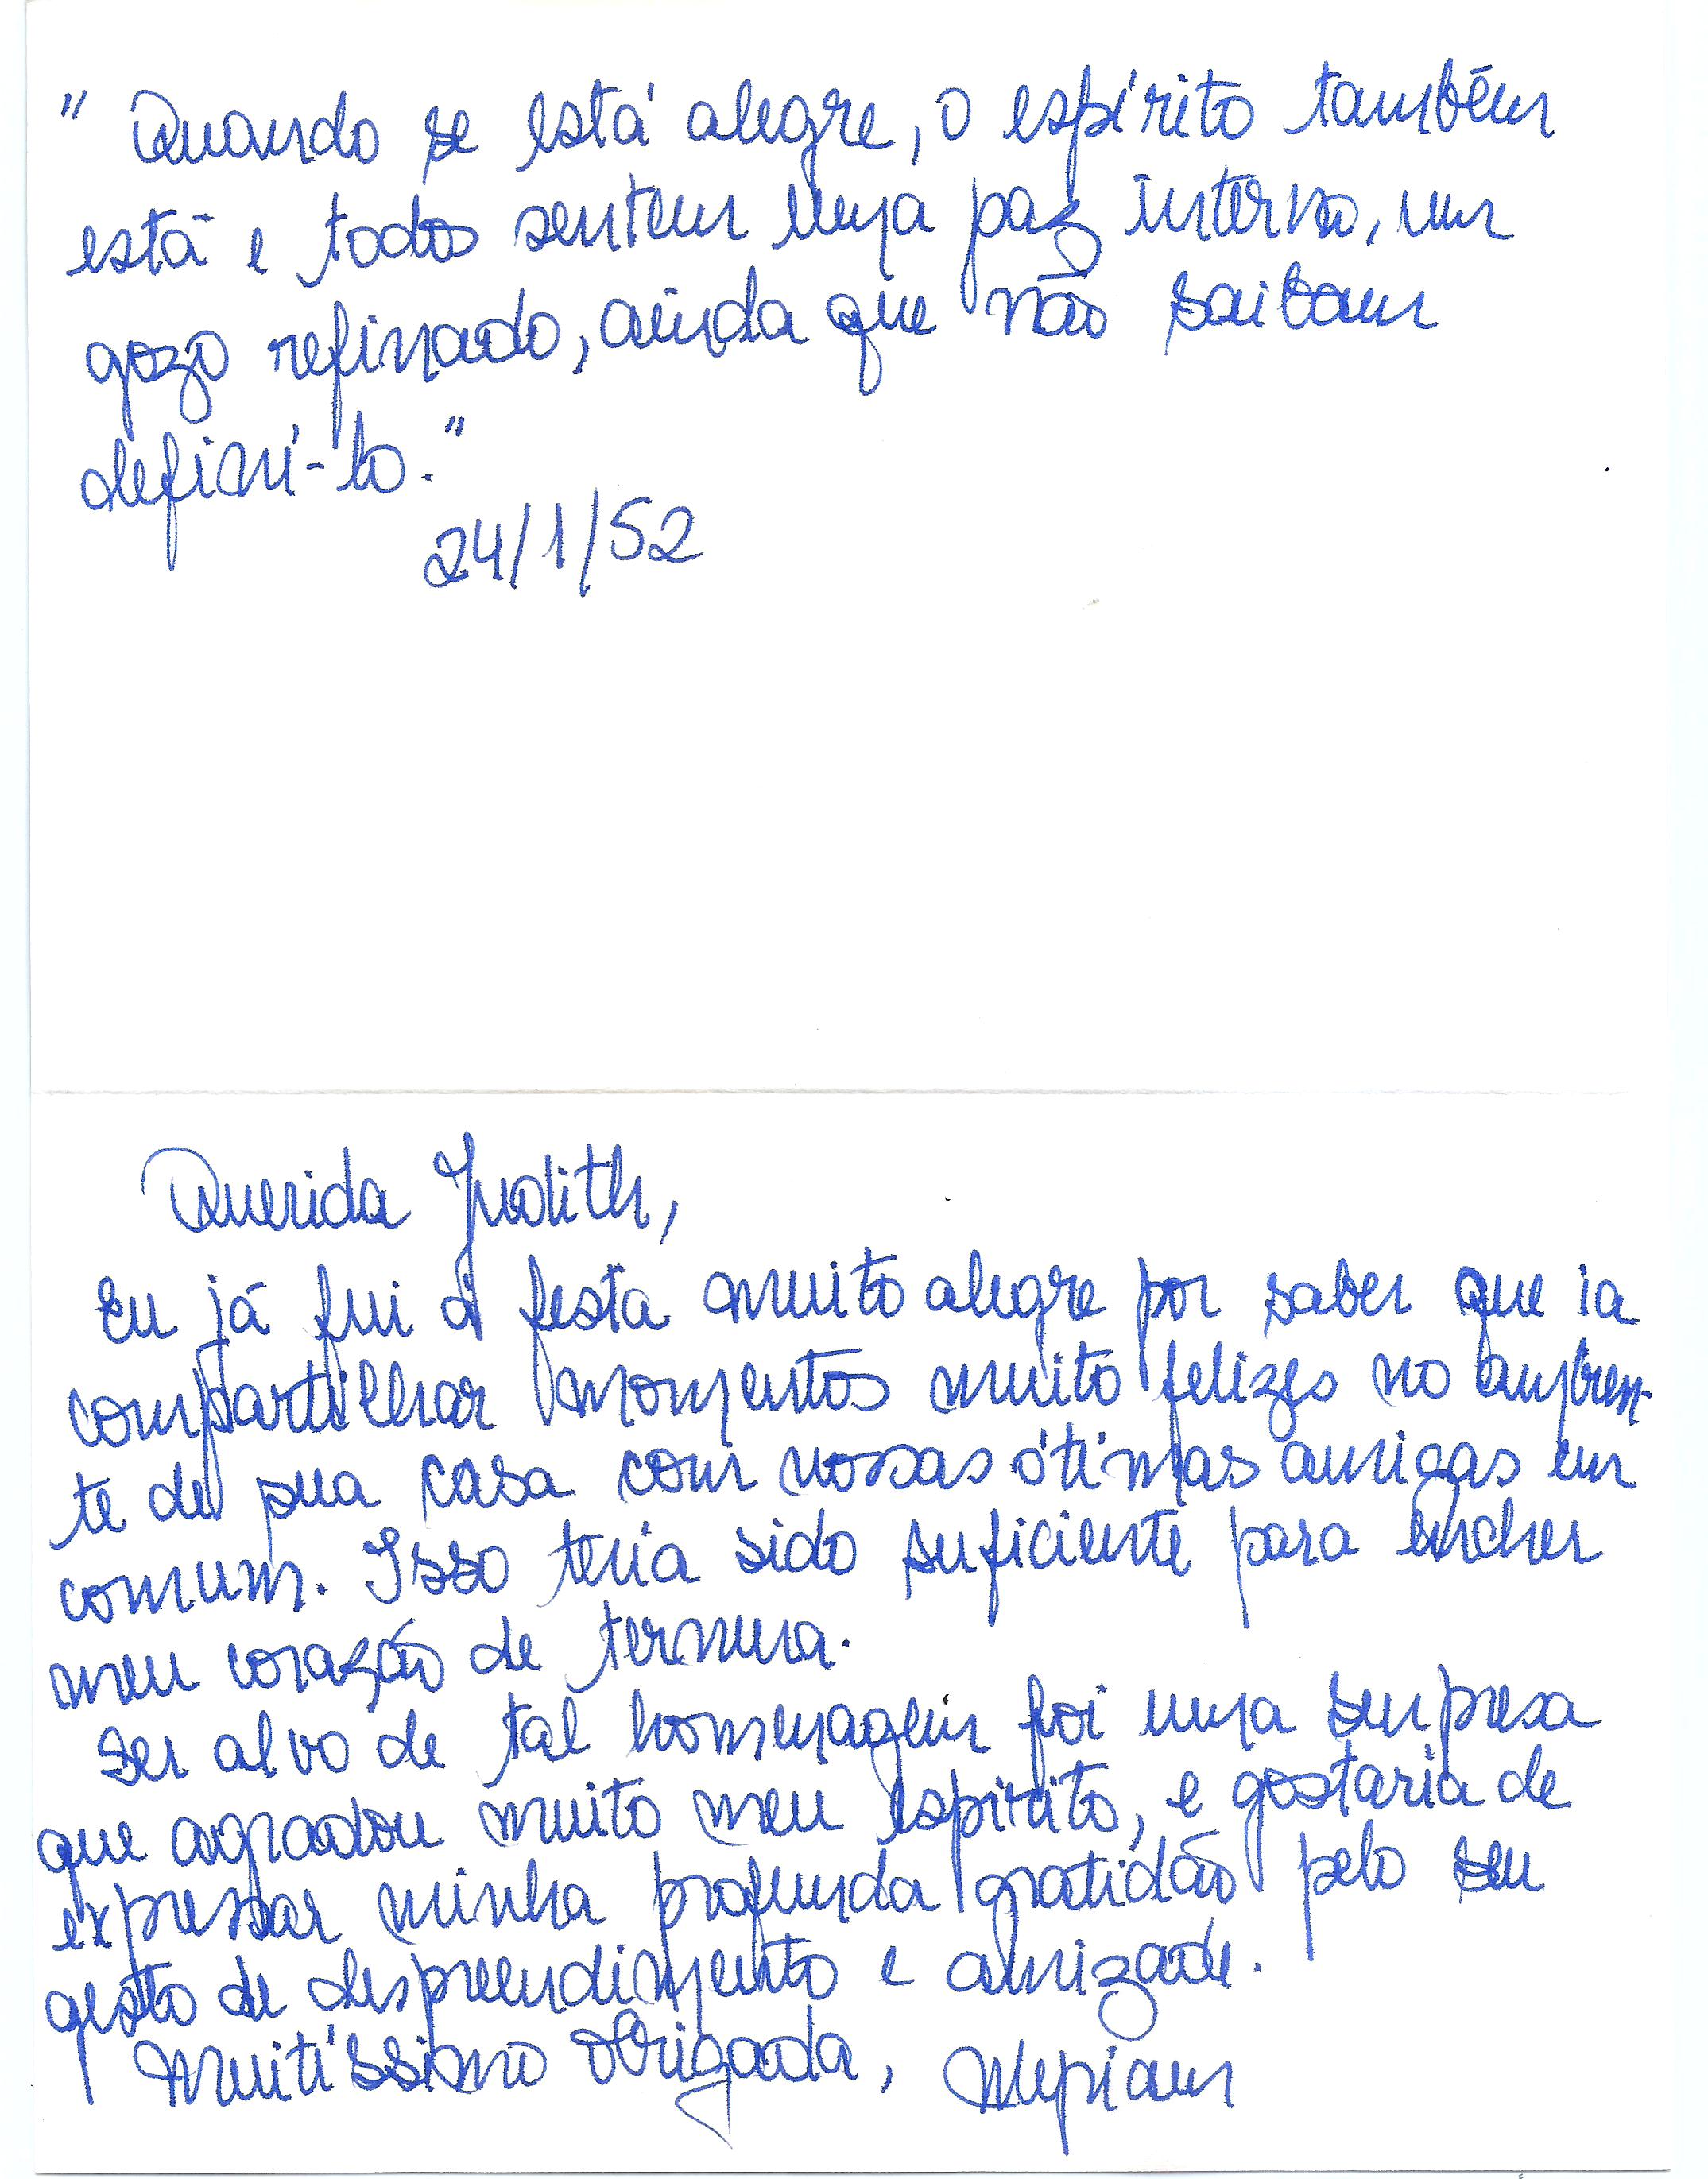 " Quando se está alegre, o espírito também
está e todos sentem uma paz interna, um
gozo refinado, ainda que não saibam
definí-lo."
24/1/52
Querida Judith,
Eu já fui à festa muito alegre por saber que ia
compartilhar momentos muito felizes no ambien-
te de sua casa com nossas ótimas amigas em
comum. Isso teria sido suficiente para encher
meu coração de ternura.
Ser alvo de tal homenagem foi uma surpresa
que agradou muito meu espírito, e gostaria de
expressar minha profunda gratidão pelo seu
gesto de desprendimento e amizade.
Muitíssimo obrigada,